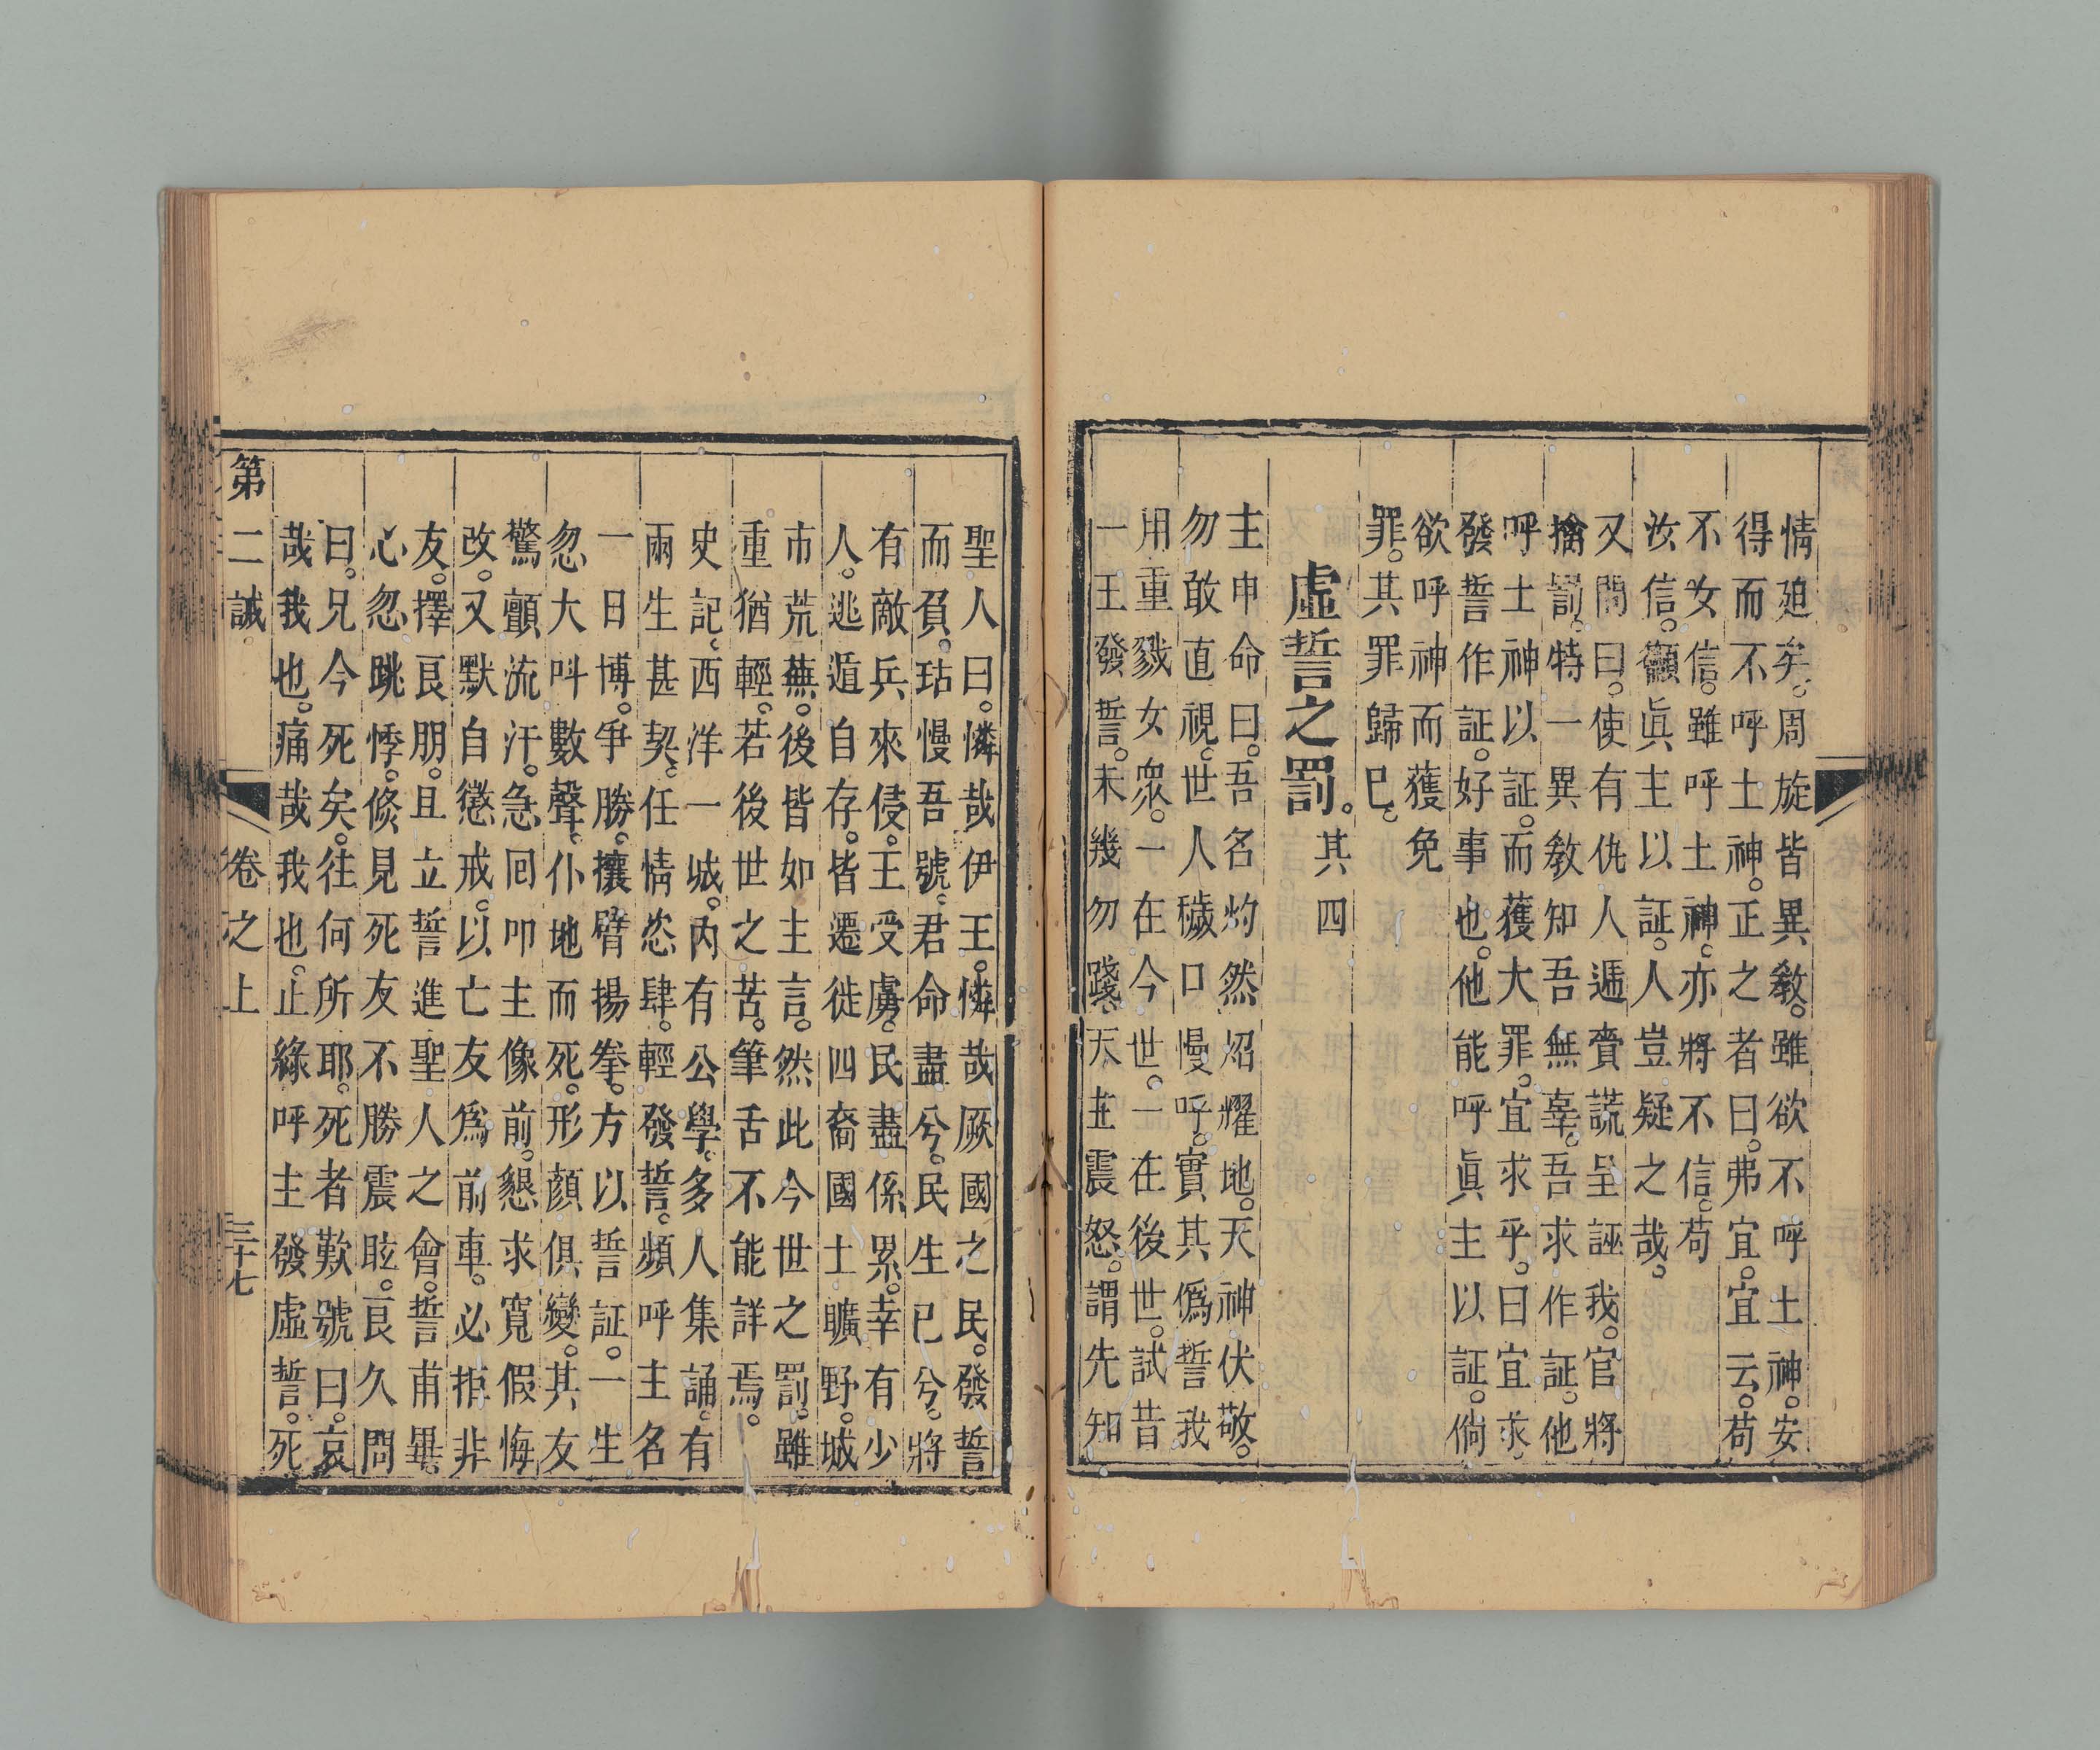 情廹矣。周旋皆異敎。雖欲不呼土神。安
得而不呼土神。正之者曰。弗宜。宜云。苟
不女信。雖呼土神。亦將不信。苟
汝信。籲眞主以証。人豈疑之哉。
又問曰。使有仇人遞賫謊呈誣我。官將
擒罰。特一異敎知吾無辜。吾求作証。他
呼土神以証。而獲大罪。宜求乎。曰宜求。
發誓作証。好事也。他能呼眞主以証。倘
欲呼神而獲免
罪。其罪歸巳。
虛誓之罰。其四
主申命曰。吾名灼然炤耀地。天神伏敬。
勿敢直視。世人穢口慢呼。實其僞誓我
用重戮女衆。一在今世。一在後世。試昔
一王發誓。未幾勿踐。天主震怒。謂先知
聖人曰。憐哉伊王。憐哉厥國之民。發誓
而負玷慢吾號。君命盡兮。民生已兮。將
有敵兵來侵。王受虜。民盡係累。幸有少
人。逃遁自存。皆遷徙四裔國土曠野。城
市荒蕪。後皆如主言。然此今世之罰。雖
重猶輕。若後世之苦。筆舌不能詳焉。
史記。西洋一城。內有公學。多人集誦。有
兩生甚契。任情恣肆。輕發誓。頻呼主名
一日博。爭勝。攘臂揚拳。方以誓証。一生
忽大呌數聲。仆地而死。形顏俱變。其友
驚顫流汗。急囘叩主像前。懇求寬假悔
改。又默自懲戒。以亡友爲前車。必拒非
友。擇良朋。且立誓進聖人之會。誓甫畢。
心忽跳悸。倐見死友不勝震眩。良久問
曰。兄今死矣。往何所耶。死者歎號曰。哀
哉我也。痛哉我也。止緣呼主發虛誓。死
第二誡。 卷之上 三十七